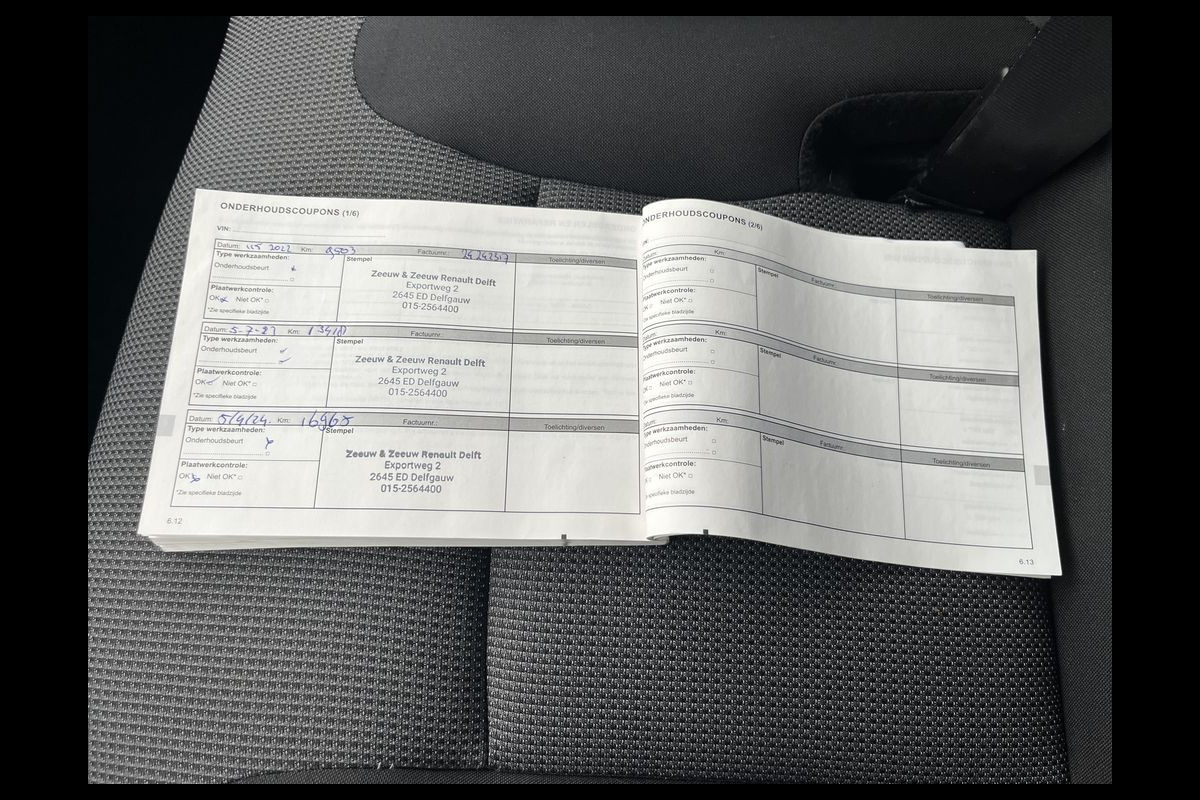 ONDERHOUDSCOUPONS (1/6)
VIN:
Datum: 2022 Km: 9503 Factuurnr.: 24242317
Type werkzaamheden: Stempel Toelichting/diversen
Onderhoudsbeurt
Zeeuw & Zeeuw Renault Delft
Exportweg 2
2645 ED Delfgauw
015-2564400
Plaatwerkcontrole:
OK Niet OK*
*Zie specifieke bladzijde
Datum: 5-7-23 Km: 13418 Factuurnr.:
Type werkzaamheden: Stempel Toelichting/diversen
Onderhoudsbeurt
Zeeuw & Zeeuw Renault Delft
Exportweg 2
2645 ED Delfgauw
015-2564400
Plaatwerkcontrole:
OK Niet OK*
*Zie specifieke bladzijde
Datum: 5/4/24. Km: 16968 Factuurnr.:
Type werkzaamheden: Stempel Toelichting/diversen
Onderhoudsbeurt
Zeeuw & Zeeuw Renault Delft
Exportweg 2
2645 ED Delfgauw
015-2564400
Plaatwerkcontrole:
OK Niet OK*
*Zie specifieke bladzijde
6.12
ONDERHOUDSCOUPONS (2/6)
Km: Factuurnr.:
Type werkzaamheden: Stempel Toelichting/diversen
Onderhoudsbeurt
Plaatwerkcontrole:
OK Niet OK*
*Zie specifieke bladzijde
Datum: Km: Factuurnr.:
Type werkzaamheden: Stempel Toelichting/diversen
Onderhoudsbeurt
Plaatwerkcontrole:
OK Niet OK*
*Zie specifieke bladzijde
Datum: Km: Factuurnr.:
Type werkzaamheden: Stempel Toelichting/diversen
Onderhoudsbeurt
Plaatwerkcontrole:
OK Niet OK*
*Zie specifieke bladzijde
6.13